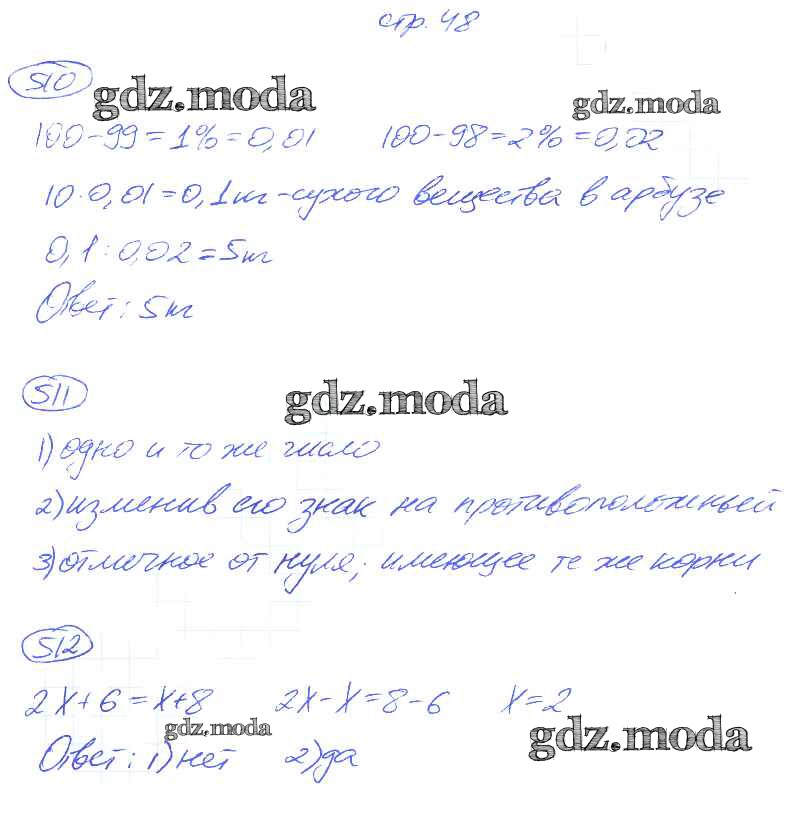 стр. 48
510
gdz.moda gdz.moda
100-99=1%=0,01 100-98=2%=0,02
10·0,01=0,1кг-сухого вещества в арбузе
0,1:0,02=5кг
Ответ: 5кг
511
gdz.moda
1) одно и то же число
2) изменив его знак на противоположный
3) отличное от нуля; имеющее те же корни
512
2x+6=x+8 2x-x=8-6 x=2
gdz.moda gdz.moda
Ответ: 1) нет 2) да